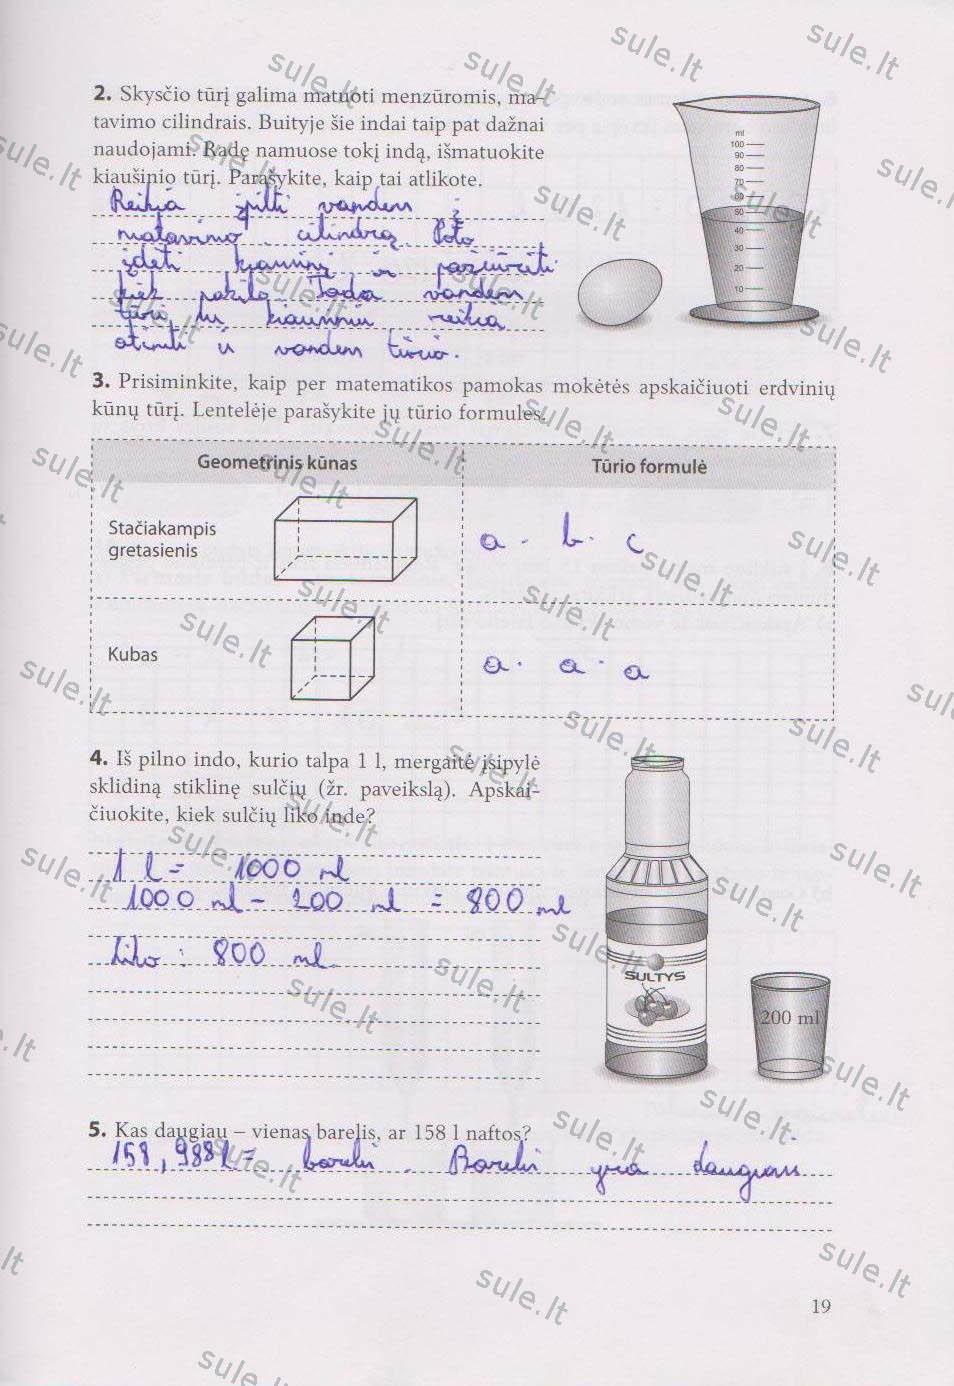 2. Skysčio tūrį galima matuoti menzūromis, ma-
tavimo cilindrais. Buityje šie indai taip pat dažnai
naudojami. Radę namuose tokį indą, išmatuokite
kiaušinio tūrį. Parašykite, kaip tai atlikote.
Reikia įpilti vandens į
matavimo cilindrą. Poto
įdėti kiaušinį ir pažiūrėti
kiek pakilo. Tada vandens
tūrio su kiaušiniu reikia
atimti iš vandens tūrio.
ml
100
90
80
70
60
50
40
30
20
10
3. Prisiminkite, kaip per matematikos pamokas mokėtės apskaičiuoti erdvinių
kūnų tūrį. Lentelėje parašykite jų tūrio formules.
Geometrinis kūnas Tūrio formulė
Stačiakampis
gretasienis
a · b · c
Kubas a · a · a
4. Iš pilno indo, kurio talpa 1 l, mergaitė įsipylė
sklidiną stiklinę sulčių (žr. paveikslą). Apskai-
čiuokite, kiek sulčių liko inde?
1 l = 1000 ml
1000 ml - 200 ml = 800 ml
Liko : 800 ml.
SULTYS
200 ml
5. Kas daugiau – vienas barelis, ar 158 l naftos?
158,988 l = barelis. Barelis yra daugiau
19
sule.lt